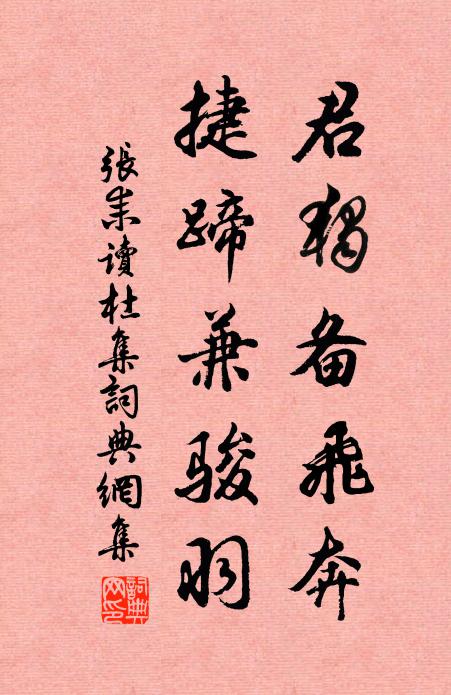 君獨备飛奔
捷蹄兼骏羽
張耒讀杜集詞典網集
詞典网印